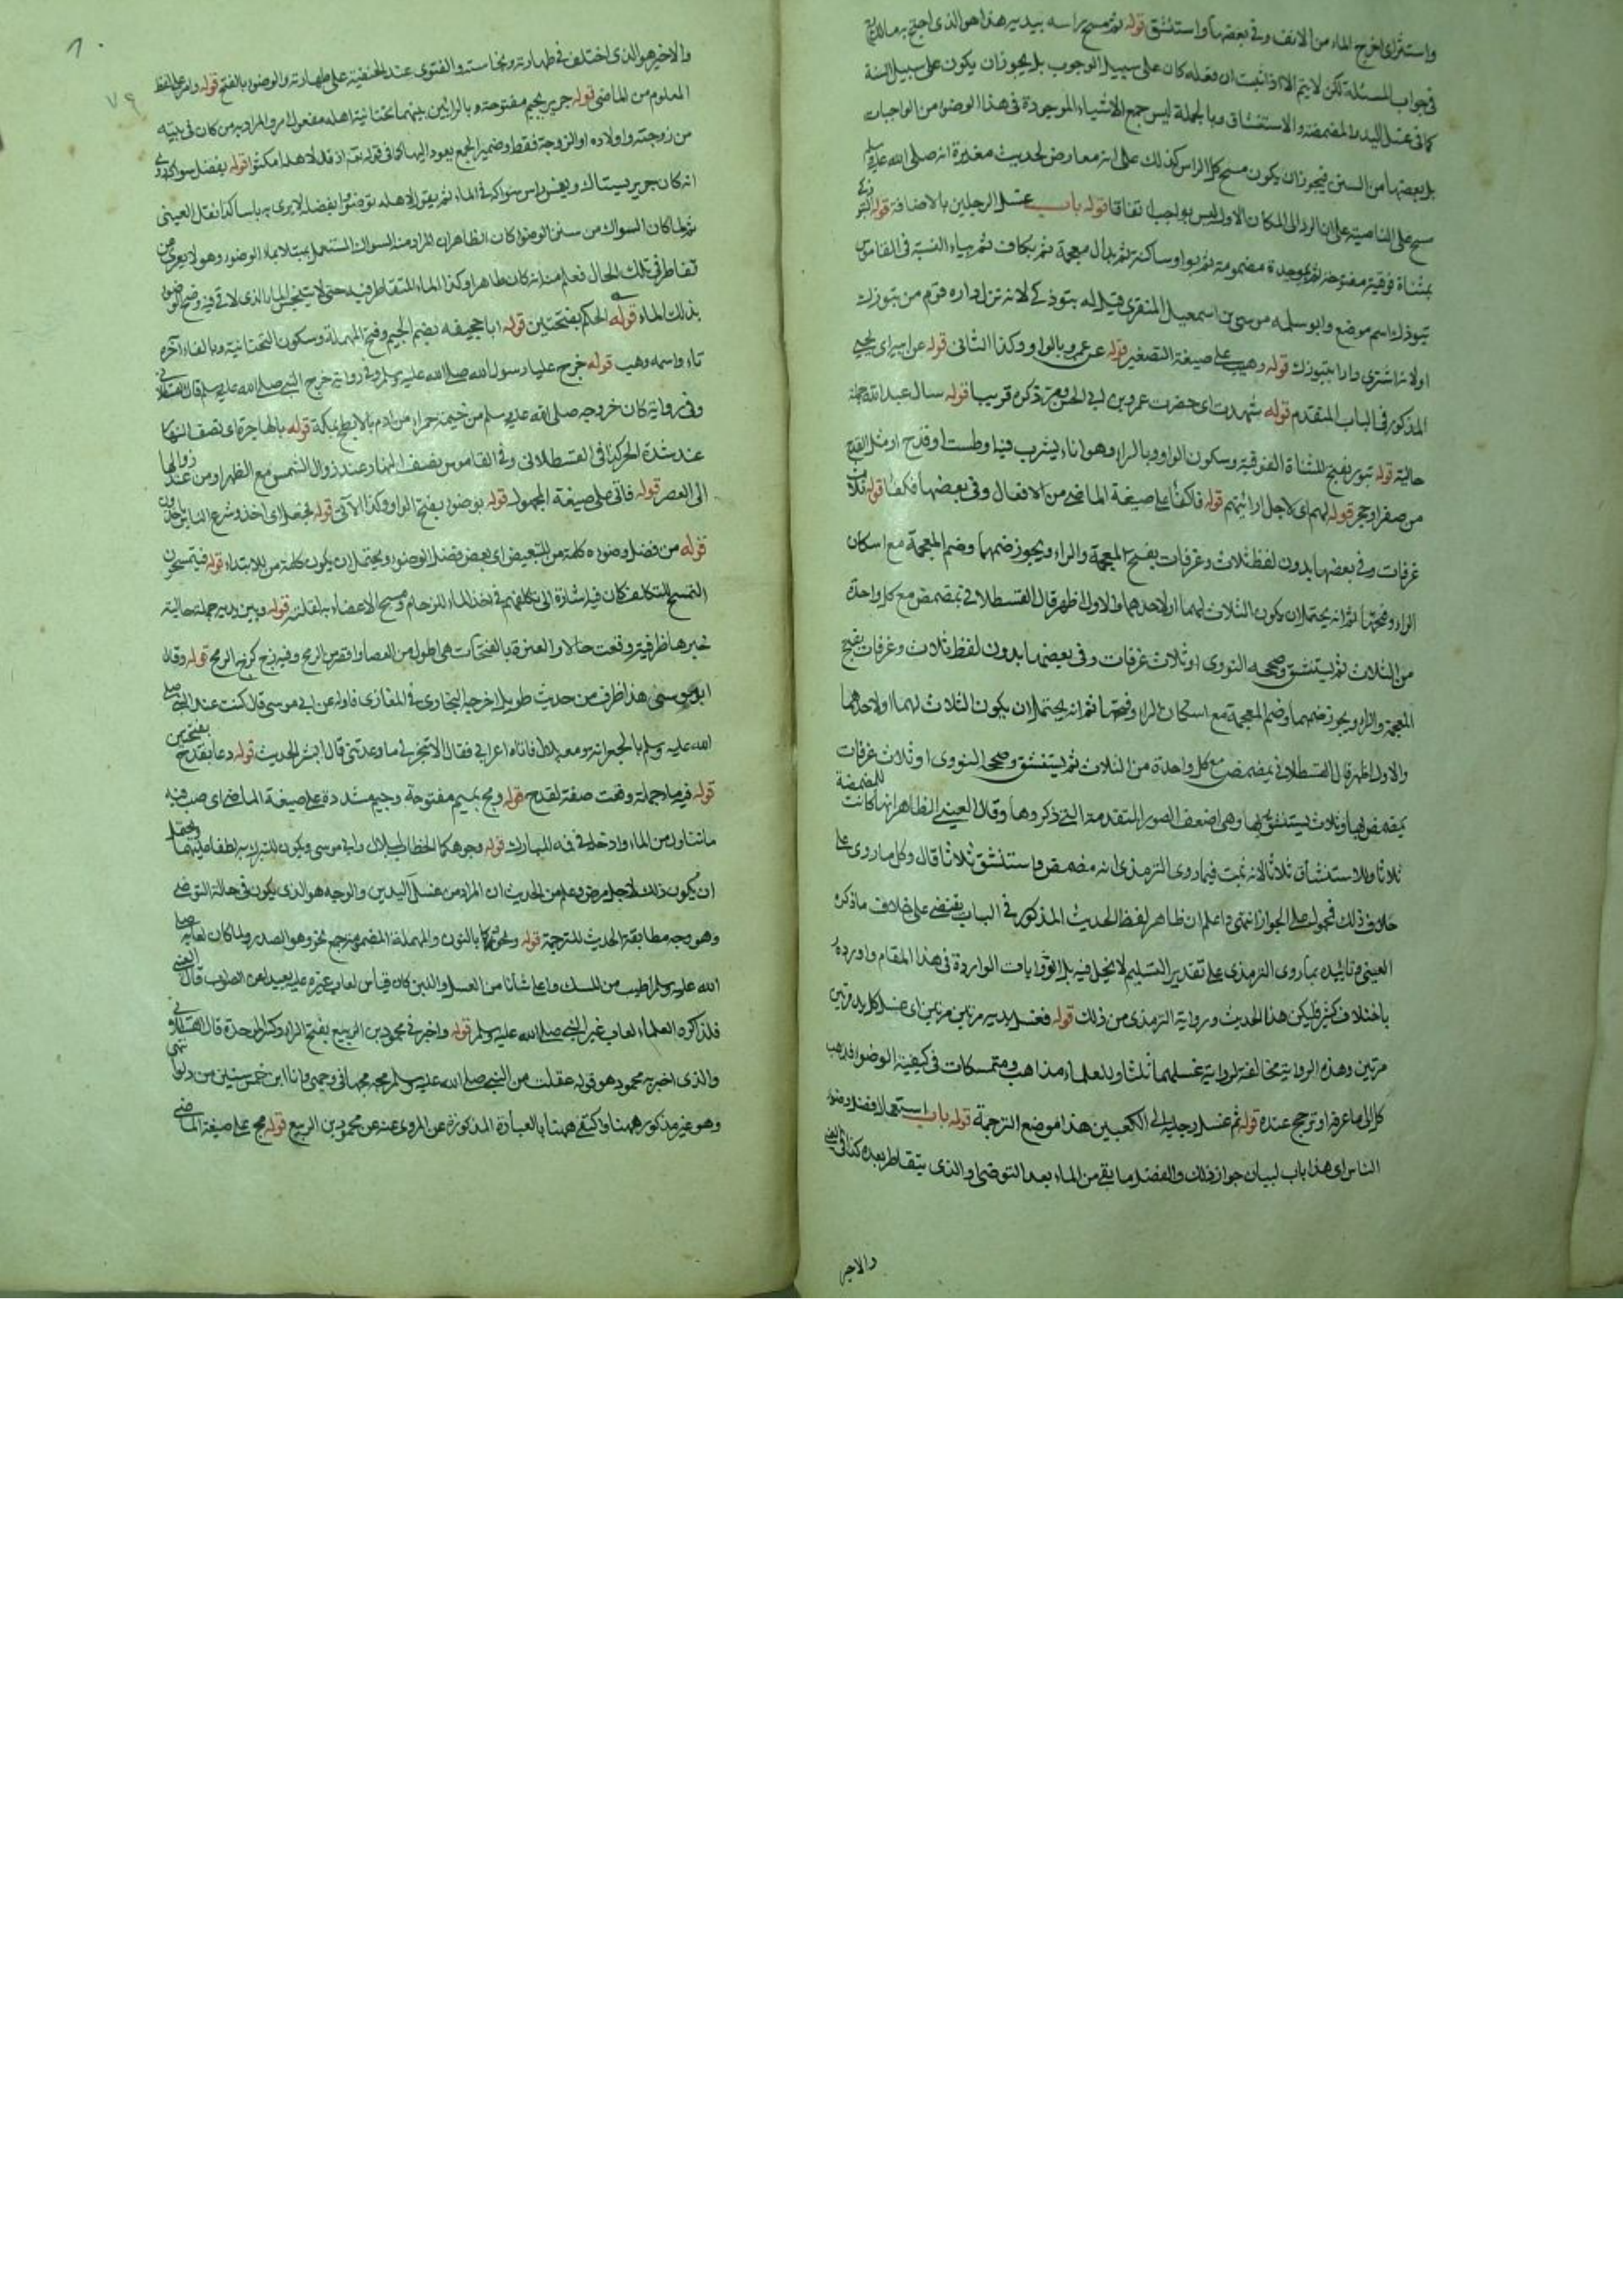 واستنثر اي اخرج الماء من الانف وفي بعضها واستنشق قوله ثم مسح راسه بيديه هذا هو الذي احتج به مالك
في جواب المسئلة لكن لا يتم الا اذا ثبت ان فعله كان على سبيل الوجوب بل يجوز ان يكون على سبيل السنة
كما في غسل اليد والمضمضة والاستنشاق وبالجملة ليس جمع الاشياء الموجودة في هذا الوضوء من الواجبات
بل بعضها من السنن فيجوز ان يكون مسح كل الراس كذلك على انه معارض لحديث مغيرة انه صلى الله عليه وسلم
مسح على الناصية على ان الرد الى المكان الاول ليس بواجب اتفاقا قوله باب غسل الرجلين بالاضافة قوله التبوذكي
بمثناة فوقية مفتوحة ثم بموحدة مضمومة ثم بواو ساكنة ثم بذال معجمة ثم بكاف ثم بياء النسبة في القاموس
تبوذك اسم موضع وابو سلمه موسى بن اسمعيل المنقري قيل له تبوذكي لانه نزل داره قوم من تبوذك
اولانه اشترى دارا بتبوذك قوله وهيب على صيغة التصغير قوله عن عمرو بالواو وكذا الثاني قوله عن ابيه اي يحيى
المذكور في الباب المتقدم قوله شهدت اي حضرت عمرو بن ابي الحسن ومر ذكره قريبا قوله سال عبد الله جملة
حالية قوله بتور بفتح المثناة الفوقية وسكون الواو وبالراء وهو اناء يشرب فيه او طست او قدح او مثل القدح
من صفر او حجر قوله لهم اي لاجل ارائتهم قوله فاكفأ على صيغة الماضي من الافعال وفي بعضها فكفأ قوله ثلاث
غرفات وفي بعضها بدون لفظ ثلاث وغرفات بفتح المعجمة والراء ويجوز ضمهما وضم المعجمة مع اسكان
الراء وفتحها ثم انه يحتمل ان يكون الثلاث لهما اولاحدهما والاول اظهر قال القسطلاني تمضمض مع كل واحدة
من الثلاث ثم يستنشق وصححه النووي او ثلاث غرفات وفي بعضها بدون لفظ ثلاث وغرفات بفتح
المعجمة والراء ويجوز ضمهما وضم المعجمة مع اسكان الراء وفتحها ثم انه يحتمل ان يكون الثلاث لهما اولاحدهما
والاول اظهر قال القسطلاني يمضمض مع كل واحدة من الثلاث ثم يستنشق وصححه النووي او ثلاث غرفات
يتمضمض بها وثلاث يستنشق بها وهي اضعف الصور المتقدمة التي ذكروها وقال العيني الظاهر انها كانت للمضمضة
ثلاثا وللاستنشاق ثلاثا لانه ثبت فيما روى الترمذي انه مضمض واستنشق ثلاثا قال وكل ما روي على
خلاف ذلك فمحمول على الجواز انتهى واعلم ان ظاهر لفظ الحديث المذكور في الباب يقتضي على خلاف ما ذكره
العيني وتائيده بما روى الترمذي على تقدير التسليم لا يخل فيه بل الروايات الواردة في هذا المقام واردة
باختلاف كثير فليكن هذا الحديث ورواية الترمذي من ذلك قوله فغسل يديه مرتين مرتين اي غسل كل يد مرتين
مرتين وهذه الرواية مخالفة لرواية غسلهما ثلثا وللعلماء مذاهب ومتمسكات في كيفية الوضوء فذهب
كل الى ما عرفه او ترجح عنده قوله ثم غسل رجليه الى الكعبين هذا موضع الترجمة قوله باب استعمال فضل وضوء
الناس اي هذا باب لبيان جواز ذلك والفضل ما بقي من الماء بعد التوضي او الذي يتقاطر بعده كذا في العيني
والاخير
٧٩
والاخير هو الذي اختلف في طهارته ونجاسته والفتوى عند الحنفية على طهارته والوضوء بالفتح قوله وامر على لفظ
المعلوم من الماضي قوله جرير بجيم مفتوحة وبالرائين بينهما تحتانية اهله مفعول امر والمراد به من كان في بيته
من زوجته واولاده او الزوجة فقط وضمير الجمع يعود اليها كما في قوله تعالى اذ قال لاهله امكثوا قوله بفضل سواكه روي
انه كان جرير يستاك ويغمس راس سواكه في الماء ثم يقول لاهله توضئوا بفضله لا يرى به باسا كذا نقل العيني
ثم لما كان السواك من سنن الوضوء كان الظاهر ان المراد منه السواك المستعمل بمبتلا بماء الوضوء وهو لا يعرى من
تقاطر في تلك الحال فعلم منه انه كان طاهرا وكذا الماء المتقاطر فيه حتى لا يتنجس الماء الذي لاقى فيه وضح الوضوء
بذلك الماء قوله الحكم بفتحتين قوله ابا جحيفه بضم الجيم وفتح المهملة وسكون التحتانية وبالفاء آخره
تاء واسمه وهب قوله خرج علينا رسول الله صلى الله عليه وسلم وفي رواية خرج النبي صلى الله عليه وسلم قال القسطلاني
وفي رواية كان خروجه صلى الله عليه وسلم من خيمة حمراء من ادم بالابطح بمكة قوله بالهاجرة اي نصف النهار
عند شدة الحر كذا في القسطلاني وفي القاموس نصف النهار عند زوال الشمس مع الظهر او من عند زوالها
الى العصر قوله فاتي على صيغة المجهول قوله بوضوء بفتح الواو وكذا الآتي قوله فجعل اي اخذ وشرع الناس ياخذون
قوله من فضل وضوئه كلمة من للتبعيض اي بعض فضل الوضوء ويحتمل ان يكون كلمة من للابتداء قوله فيتمسحون
التمسح للتكلف كان فيه اشارة الى تكلفهم في اخذ الماء للزحام ومسح الاعضاء به لقلته قوله وبين يديه جملة حالية
خبرها ظرفية وقعت حالا والعنزة بالفتحات هي اطول من العصا واقصر من الرمح وفيه زج كزج الرمح قوله وقال
ابو موسى هذا طرف من حديث طويل اخرجه البخاري في المغازي واوله عن ابي موسى قال كنت عند النبي صلى
الله عليه وسلم بالجعرانة ومعه بلال فاتاه اعرابي فقال الا تنجز لي ما وعدتني قال ابشر الحديث قوله دعا بقدح بفتحتين
قوله فيه ماء جملة وقعت صفة لقدح قوله ومج بميم مفتوحة وجيم مشددة على صيغة الماضي اي صب فيه
ما تناول من الماء وادخل في فمه المبارك قوله وجوهكما الخطاب لبلال وابي موسى ويكون للتبرك به لطفا عليهما ويحتمل
ان يكون ذلك لاجل مرض وعلم من الحديث ان المراد من غسل اليدين والوجه هو الذي يكون في حالة التوضي
وهو وجه مطابقة الحديث للترجمة قوله ونحوركما بالنون والمهملة المضمومة جمع نحر وهو الصدر ولما كان لعابه صلى
الله عليه وسلم اطيب من المسك واعلى شأنا من العسل واللبن كان قياس لعاب غيره عليه بعيدا عن الصواب قال العيني
فلذا كره العلماء لعاب غير النبي صلى الله عليه وسلم قوله واخبرني محمود بن الربيع بفتح الراء وكسر الموحدة قال القسطلاني
والذي اخبر به محمود هو قوله عقلت من النبي صلى الله عليه وسلم مجة مجها في وجهي وانا ابن خمس سنين من دلو انتهى
وهو غير مذكور ههنا واكتفى ههنا بالعبارة المذكورة عن المروي عنه عن محمود بن الربيع قوله مج على صيغة الماضي